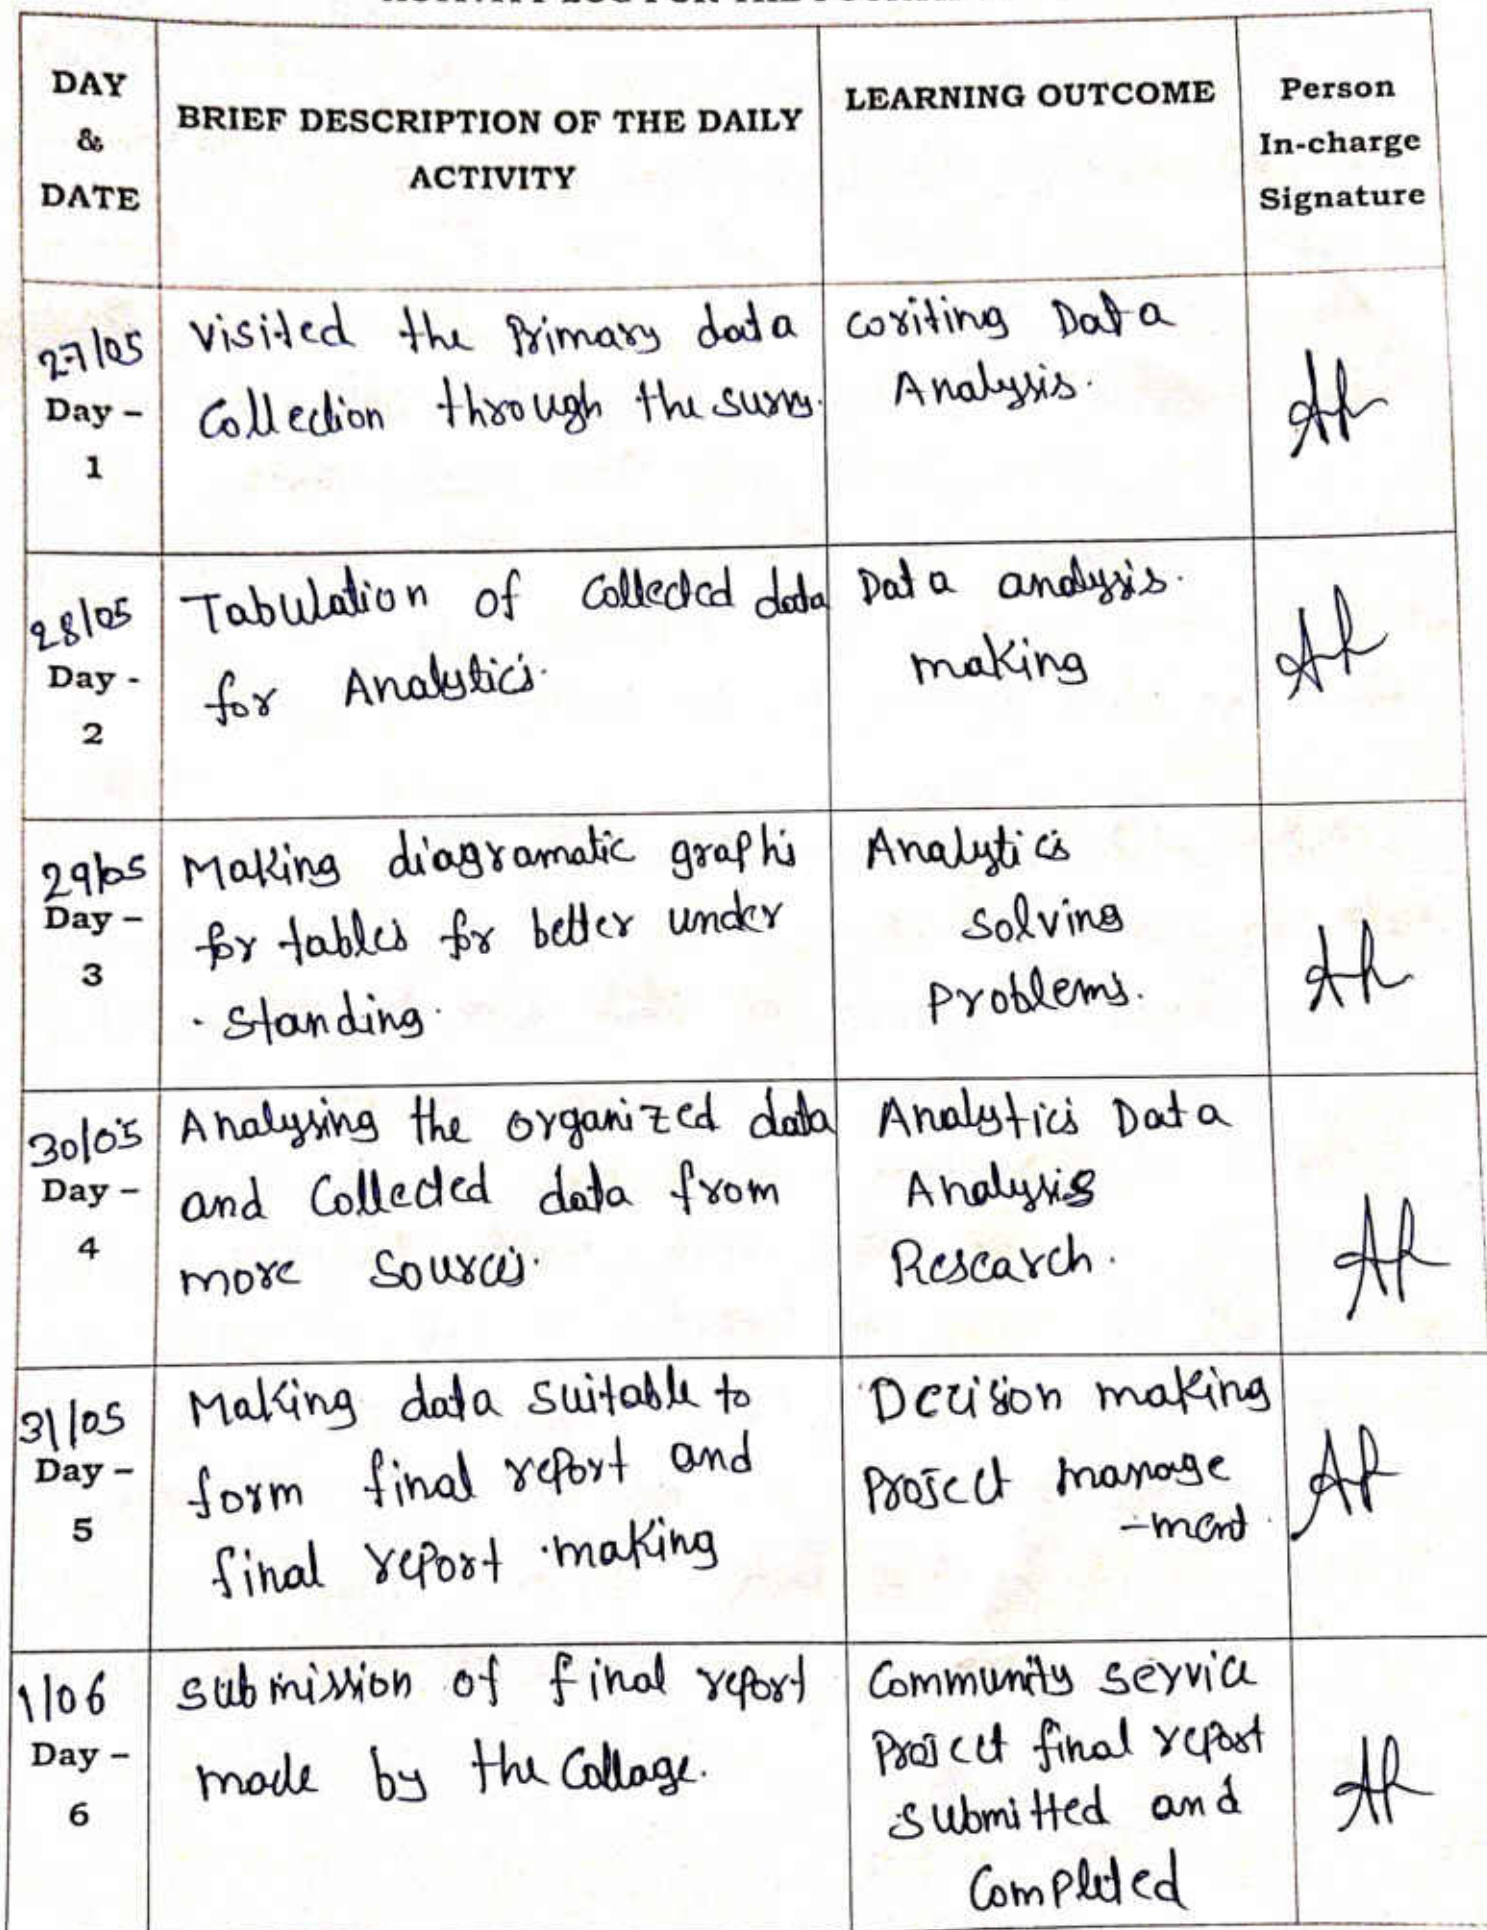 ACTIVITY LOG FOR THE
DAY
&
DATE
BRIEF DESCRIPTION OF THE DAILY
ACTIVITY
LEARNING OUTCOME
Person
In-charge
Signature
27/05
Day –
1
visited the Primary data
Collection through the survy.
coriting Data
Analysis.
28/05
Day -
2
Tabulation of collected data
for Analytics.
Data analysis.
making
29/05
Day –
3
Making diagramatic graphs
for tables for better under
. standing.
Analytics
solving
problems.
30/05
Day –
4
Analysing the organized data
and Collected data from
more sources.
Analytics Data
Analysis
Research.
31/05
Day –
5
Making data suitable to
form final report and
final report .making
Decision making
Project manage
-ment.
1/06
Day –
6
submission of final report
made by the Collage.
Community service
Project final report
submitted and
Completed